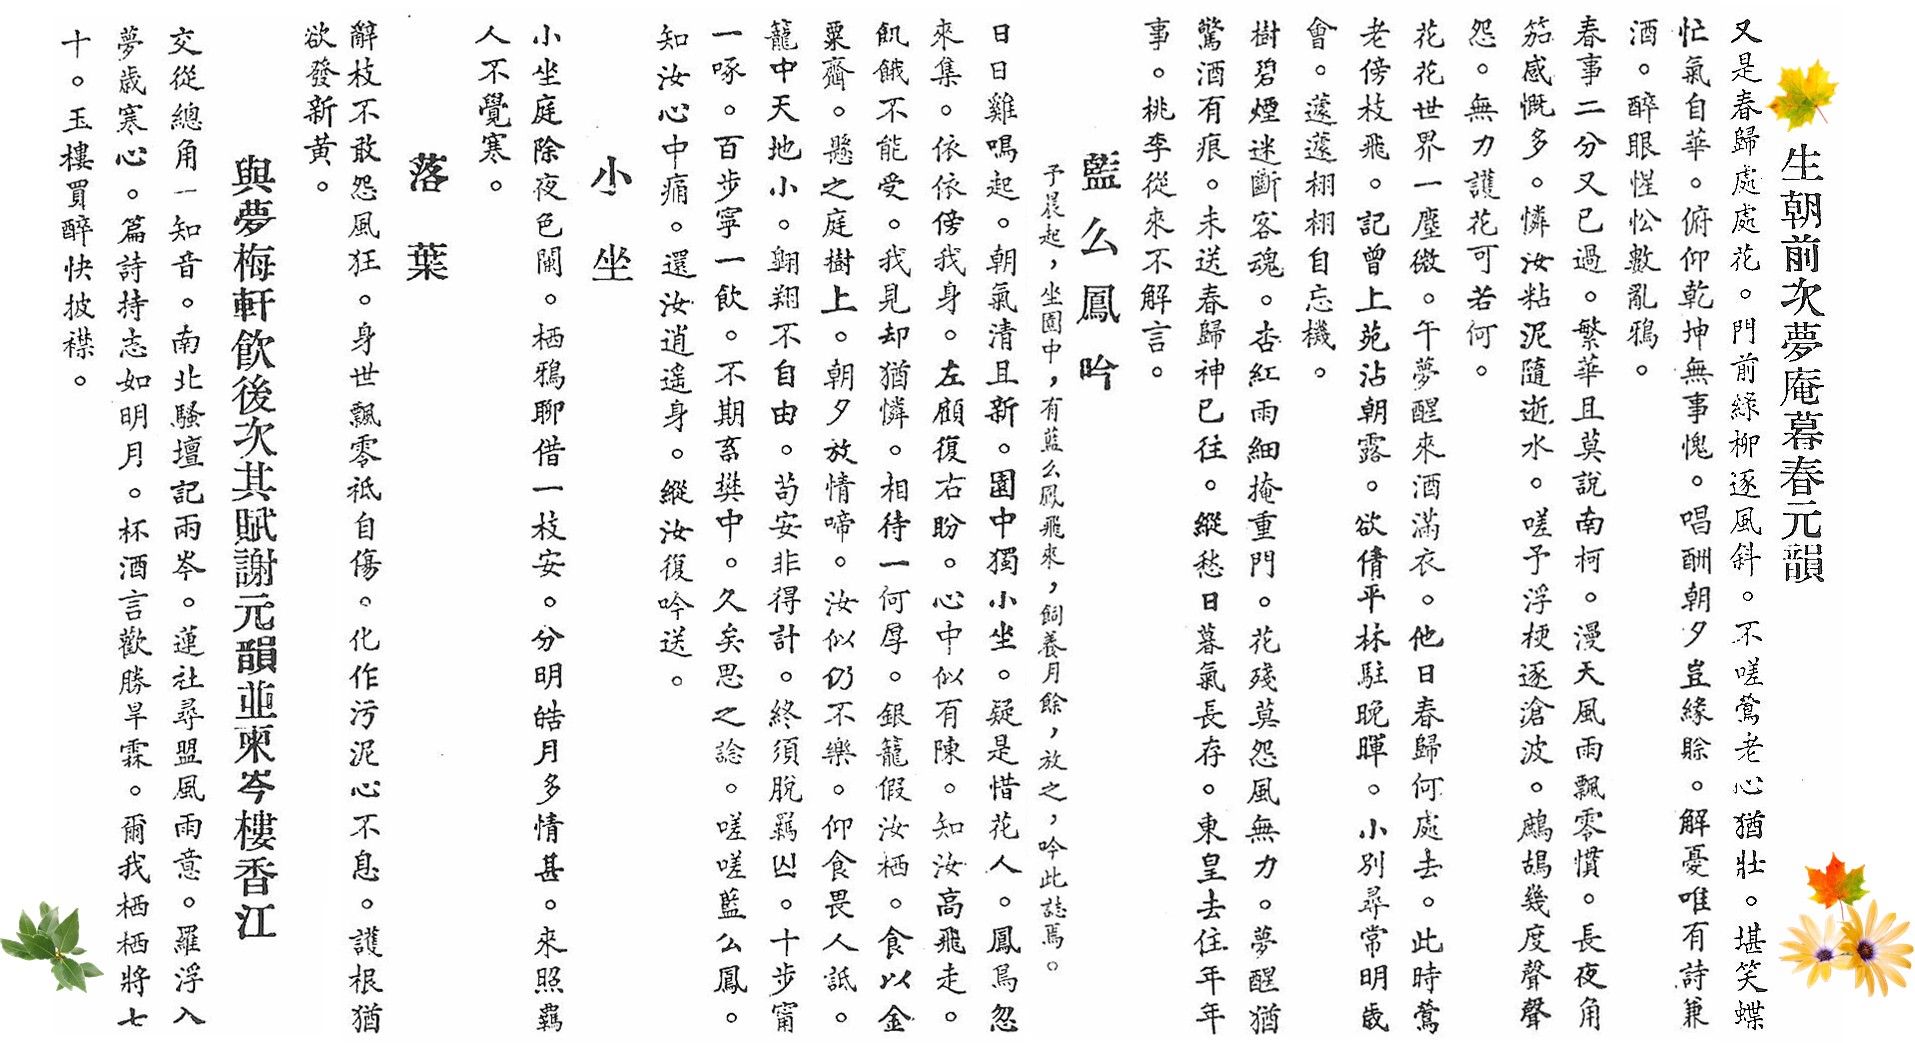 生朝前次夢庵暮春元韻
又是春歸處處花。門前綠柳逐風斜。不嗟鶯老心猶壯。堪笑蝶
忙氣自華。俯仰乾坤無事愧。唱酬朝夕豈緣賒。解憂唯有詩兼
酒。醉眼惺忪數亂鴉。
春事二分又已過。繁華且莫說南柯。漫天風雨飄零慣。長夜角
笳感慨多。憐汝粘泥隨逝水。嗟予浮梗逐滄波。鷓鴣幾度聲聲
怨。無力護花可若何。
花花世界一塵微。午夢醒來酒滿衣。他日春歸何處去。此時鶯
老傍枝飛。記曾上苑沾朝露。欲倩平林駐晚暉。小別尋常明歲
會。蘧蘧栩栩自忘機。
樹碧煙迷斷客魂。杏紅雨細掩重門。花殘莫怨風無力。夢醒猶
驚酒有痕。未送春歸神已往。縱愁日暮氣長存。東皇去住年年
事。桃李從來不解言。
藍么鳳吟
予晨起，坐園中，有藍么鳳飛來，飼養月餘，放之，吟此誌焉。
日日雞鳴起。朝氣清且新。園中獨小坐。疑是惜花人。鳳鳥忽
來集。依依傍我身。左顧復右盼。心中似有陳。知汝高飛走。
飢餓不能受。我見却猶憐。相待一何厚。銀籠假汝栖。食以金
粟齋。懸之庭樹上。朝夕放情啼。汝似仍不樂。仰食畏人詆。
籠中天地小。翱翔不自由。苟安非得計。終須脫羈囚。十步甯
一啄。百步寧一飲。不期畜樊中。久矣思之諗。嗟嗟藍么鳳。
知汝心中痛。還汝逍遙身。縱汝復吟送。
小坐
小坐庭除夜色闌。栖鴉聊借一枝安。分明皓月多情甚。來照羈
人不覺寒。
落葉
辭枝不敢怨風狂。身世飄零祇自傷。化作污泥心不息。護根猶
欲發新黃。
與夢梅軒飲後次其賦謝元韻並柬岑樓香江
交從總角一知音。南北騷壇記雨岑。蓮社尋盟風雨意。羅浮入
夢歲寒心。篇詩持志如明月。杯酒言歡勝旱霖。爾我栖栖將七
十。玉樓買醉快披襟。